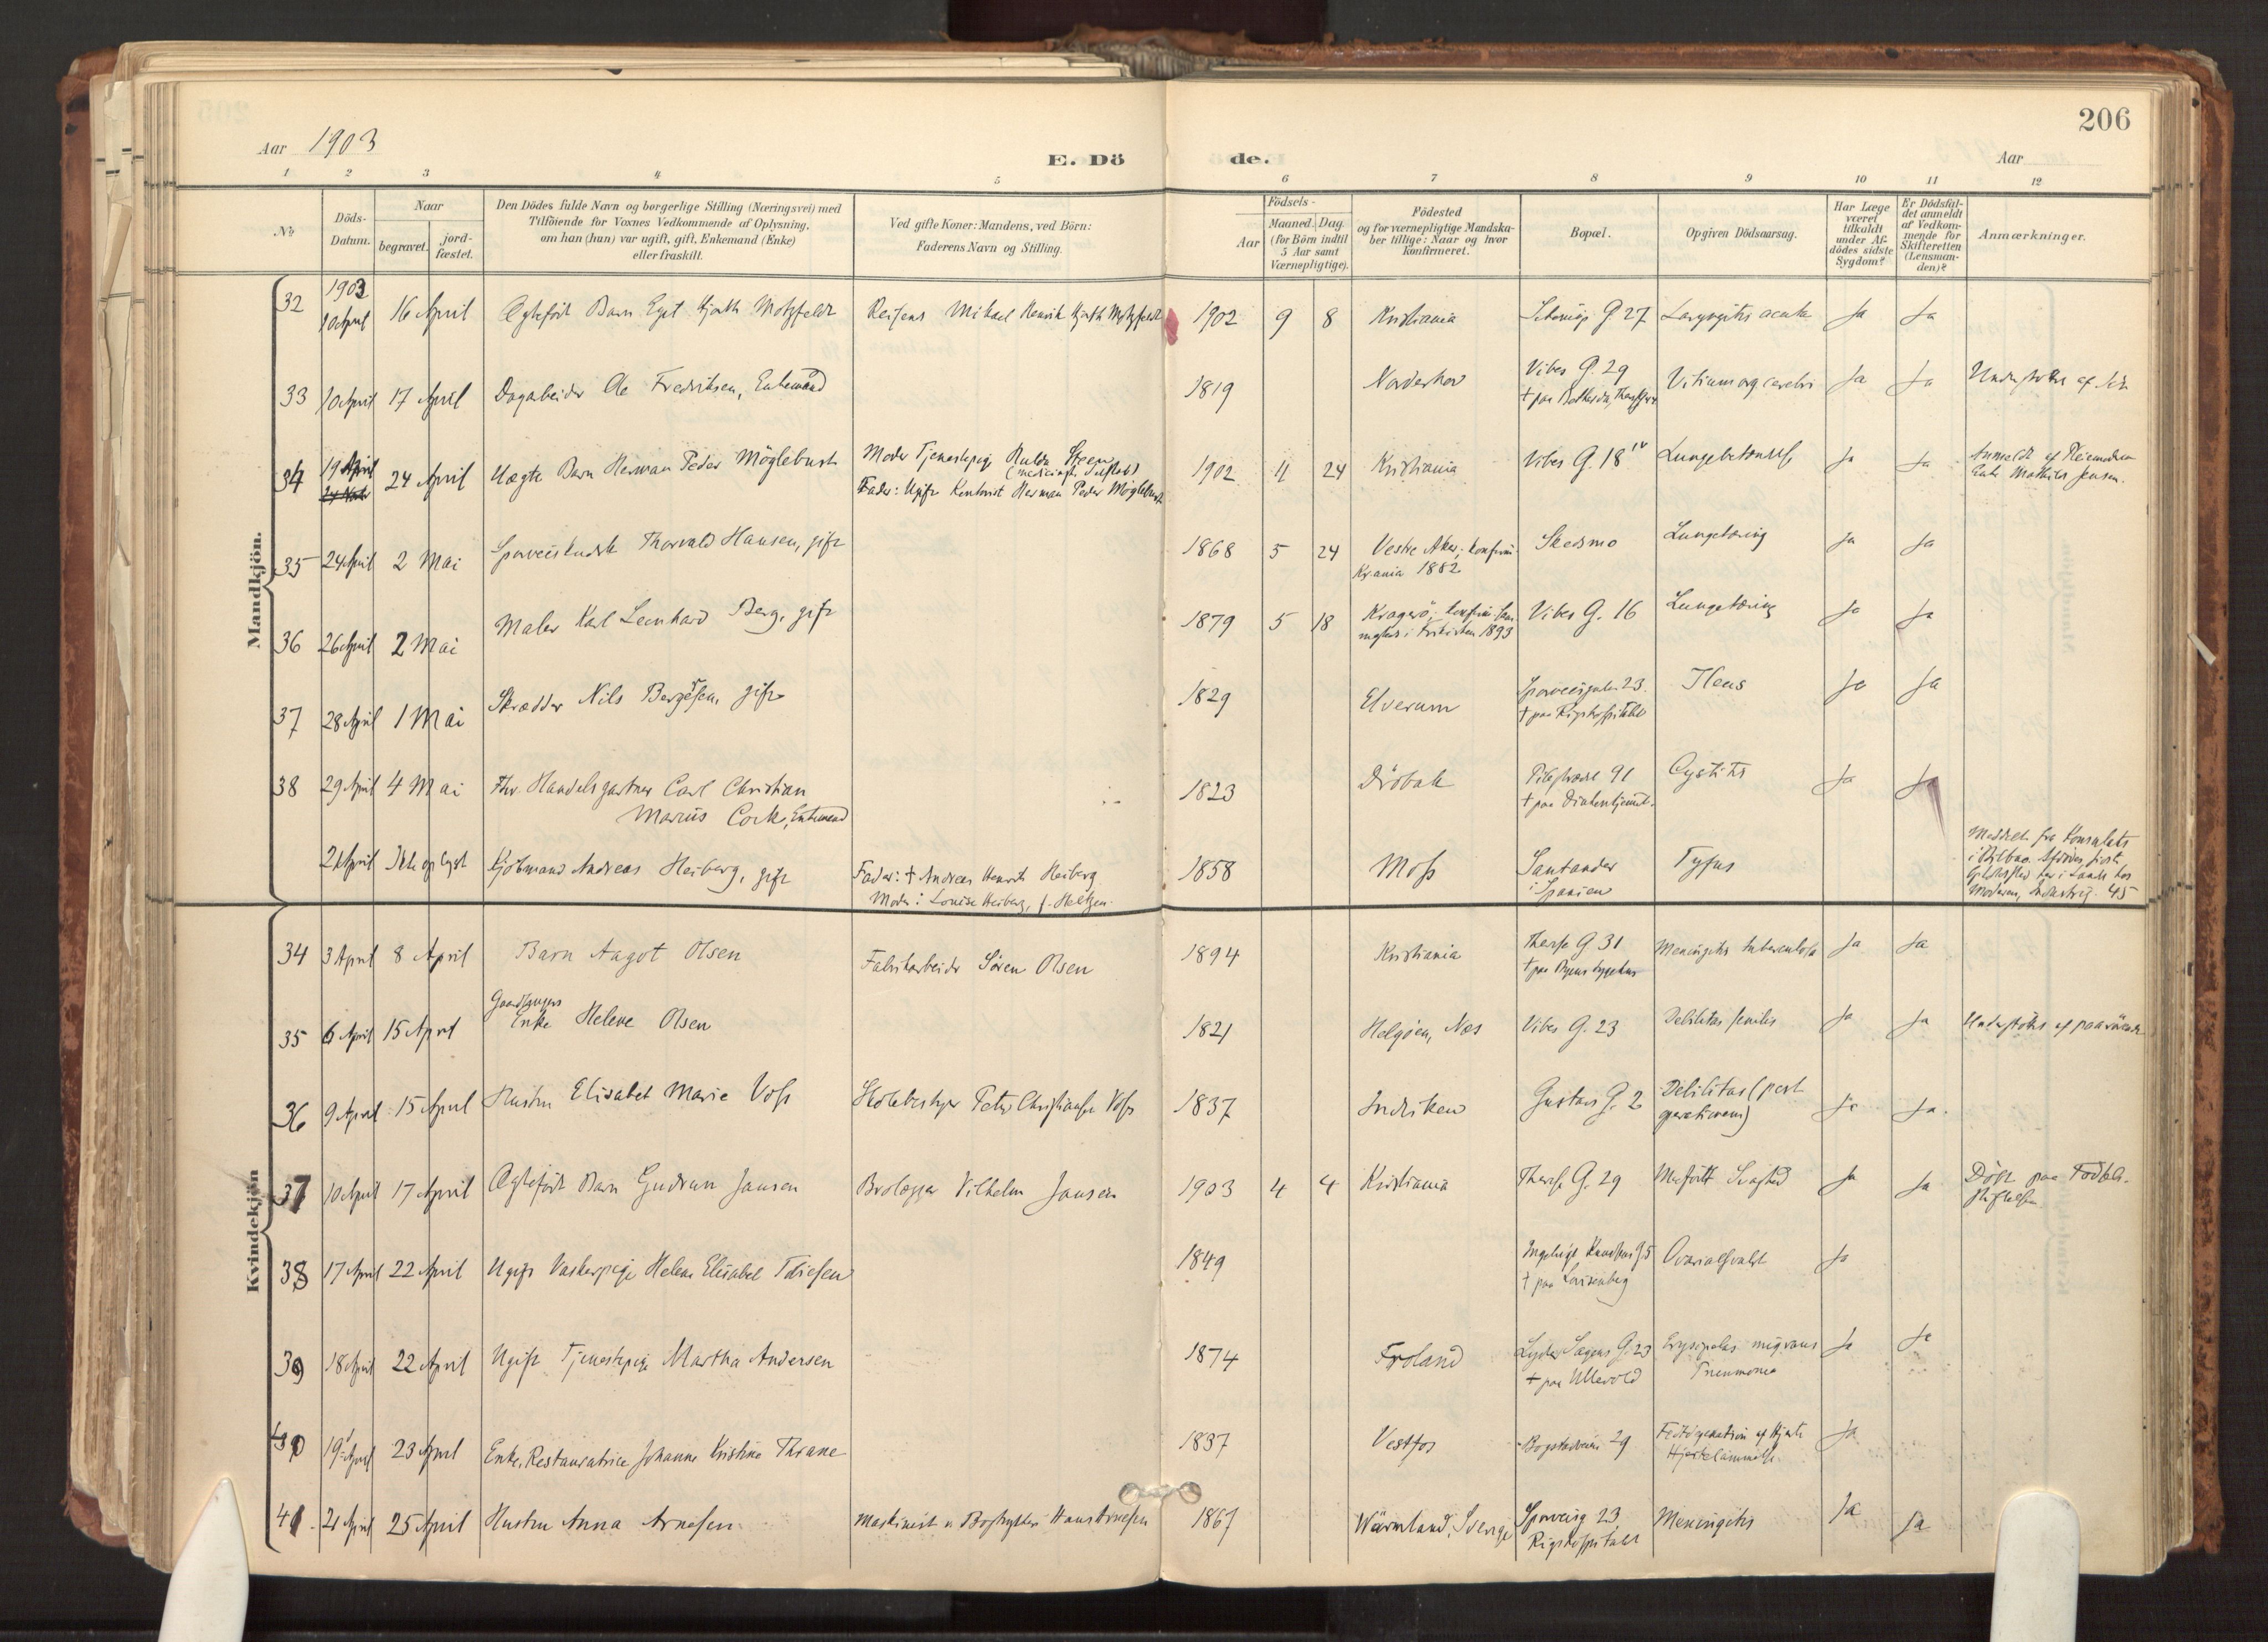 206
Aar 1903
E. Dö de.
Aar
1 2 3 4 5 6 7 8 9 10 11 12
No
Döds-
Datum.
Naar
begravet.
jord-
fæstet.
Den Dödes fulde Navn og borgerlige Stilling (Næringsvei) med
Tilföiende for Voxnes Vedkommende af Oplysning,
om han (hun) var ugift, gift, Enkemand (Enke)
eller fraskilt.
Ved gifte Koner: Mandens, ved Börn:
Faderens Navn og Stilling.
Födsels-
Aar
Maaned. Dag
(for Börn indtil
5 Aar samt
Værnepligtige).
Födested
og for værnepligtige Mandska-
ber tillige: Naar og hvor
konfirmeret.
Bopæl.
Opgiven Dödsaarsag.
Har Læge
været
tilkaldt
under Af-
dödes sidste
Sygdom?
Er Dödsfal-
det anmeldt
af Vedkom-
mende for
Skifteretten
(Lensman-
den)?
Anmærkninger.
Mandkjön.
1903
32 10 April 16 April Ægtefödt Barn Egil Hjorth Motzfeldt Mikael Henrik Hjorth Motzfeldt 1902 9 8 Kristiania G 27 Laryngitis acuta Ja Ja
33 10 April 17 April Dagarbeider Ole Fredriksen, Enkemand 1819 Norderhov Vibes G. 29 Vitium org cerebri Ja Ja
† paa
34 19 April 24 April Uægte Barn Herman Peder Möglebust Moder Tjenestepige Hulda Skeen 1902 11 24 Kristiania Vibes G. 18 IV Lungebetændelse Ja Ja Anmeldt af Pleiemoderen
Fader: Ugift Kontorist Herman Peder Möglebust
Enke Mathilde Jensen.
35 24 April 2 Mai Sporveiskudsk Thorvald Hansen, gift 1868 5 24 Vestre Aker; konfirm. Skedsmo Lungetæring Ja Ja
Kr.ania 1882
36 26 April 2 Mai Maler Karl Leonhard Berg, gift 1879 5 18 Kragerö; konfirm. Vibes G. 16 Lungetæring Ja Ja
i Frikirken 1893
37 28 April 1 Mai Skrædder Nils Bergesen, gift 1829 Elverum Sporveisgaden 23. Ileus Ja Ja
† paa Rigshospitalet
38 29 April 4 Mai Fhv. Handelsgartner Carl Christian 1823 Dröbak Pilestrædet 91 Cystitis Ja Ja
Marius Cock, Enkemand † paa Diakonhjemmet.
21 April Ikke Kjöbmand Andreas Heiberg, gift Fader: † Andreas Henrik Heiberg 1858 Moss Santander Tyfus Meddelt fra Konsulatet
Moder: Louise Heiberg, f. Heltzen. i Spanien i Bilbao.
Moderen, Industrig. 45
Kvindekjön
34 3 April 8 April Barn Aagot Olsen Fabrikarbeider Sören Olsen 1894 Kristiania Theres G 31 Meningitis tuberculosa Ja Ja
† paa Byens Sygehus
Gaardbrugers
35 6 April 15 April Enke Helene Olsen 1821 Helgöen, Næs Vibes G. 23 Debilitas senilis Ja Ja
36 9 April 15 April Hustru Elisabet Marie Voss Skolebestyrer Peter Christian Voss 1837 Gustavs G. 2 Debilitas (post Ja Ja.
operationem)
37 10 April 17 April Ægtefödt Barn Gudrun Jansen Brolægger Vilhelm Jansen 1903 4 4 Kristiania Theres G. 29 Medfödt Svaghed Ja Ja Döbt paa Födsels-
stiftelsen
38 17 April 22 April Ugift Vaskerpige Helene Elisabet 1849 5 Ovarialsvulst Ja
† paa Lovisenberg
39 18 April 22 April Ugift Tjenestepige Martha Andersen 1874 Froland Lyder Sagens G. 23 Erysipelas migrans Ja Ja
† paa Ullevold Pneumonia
40 19 April 23 April Enke, Restauratrice Johanne Kristine Thrane 1837 Vestfos Bogstadveien 29 Fedtdegeneration af Hjertet Ja
Hjertelammelse.
41 21 April 25 April Hustru Anna Arnesen Maskinist Hans Arnesen 1867 Wärmland, Sverige Sporveisg 23 Meningitis Ja Ja
Rigshospitalet